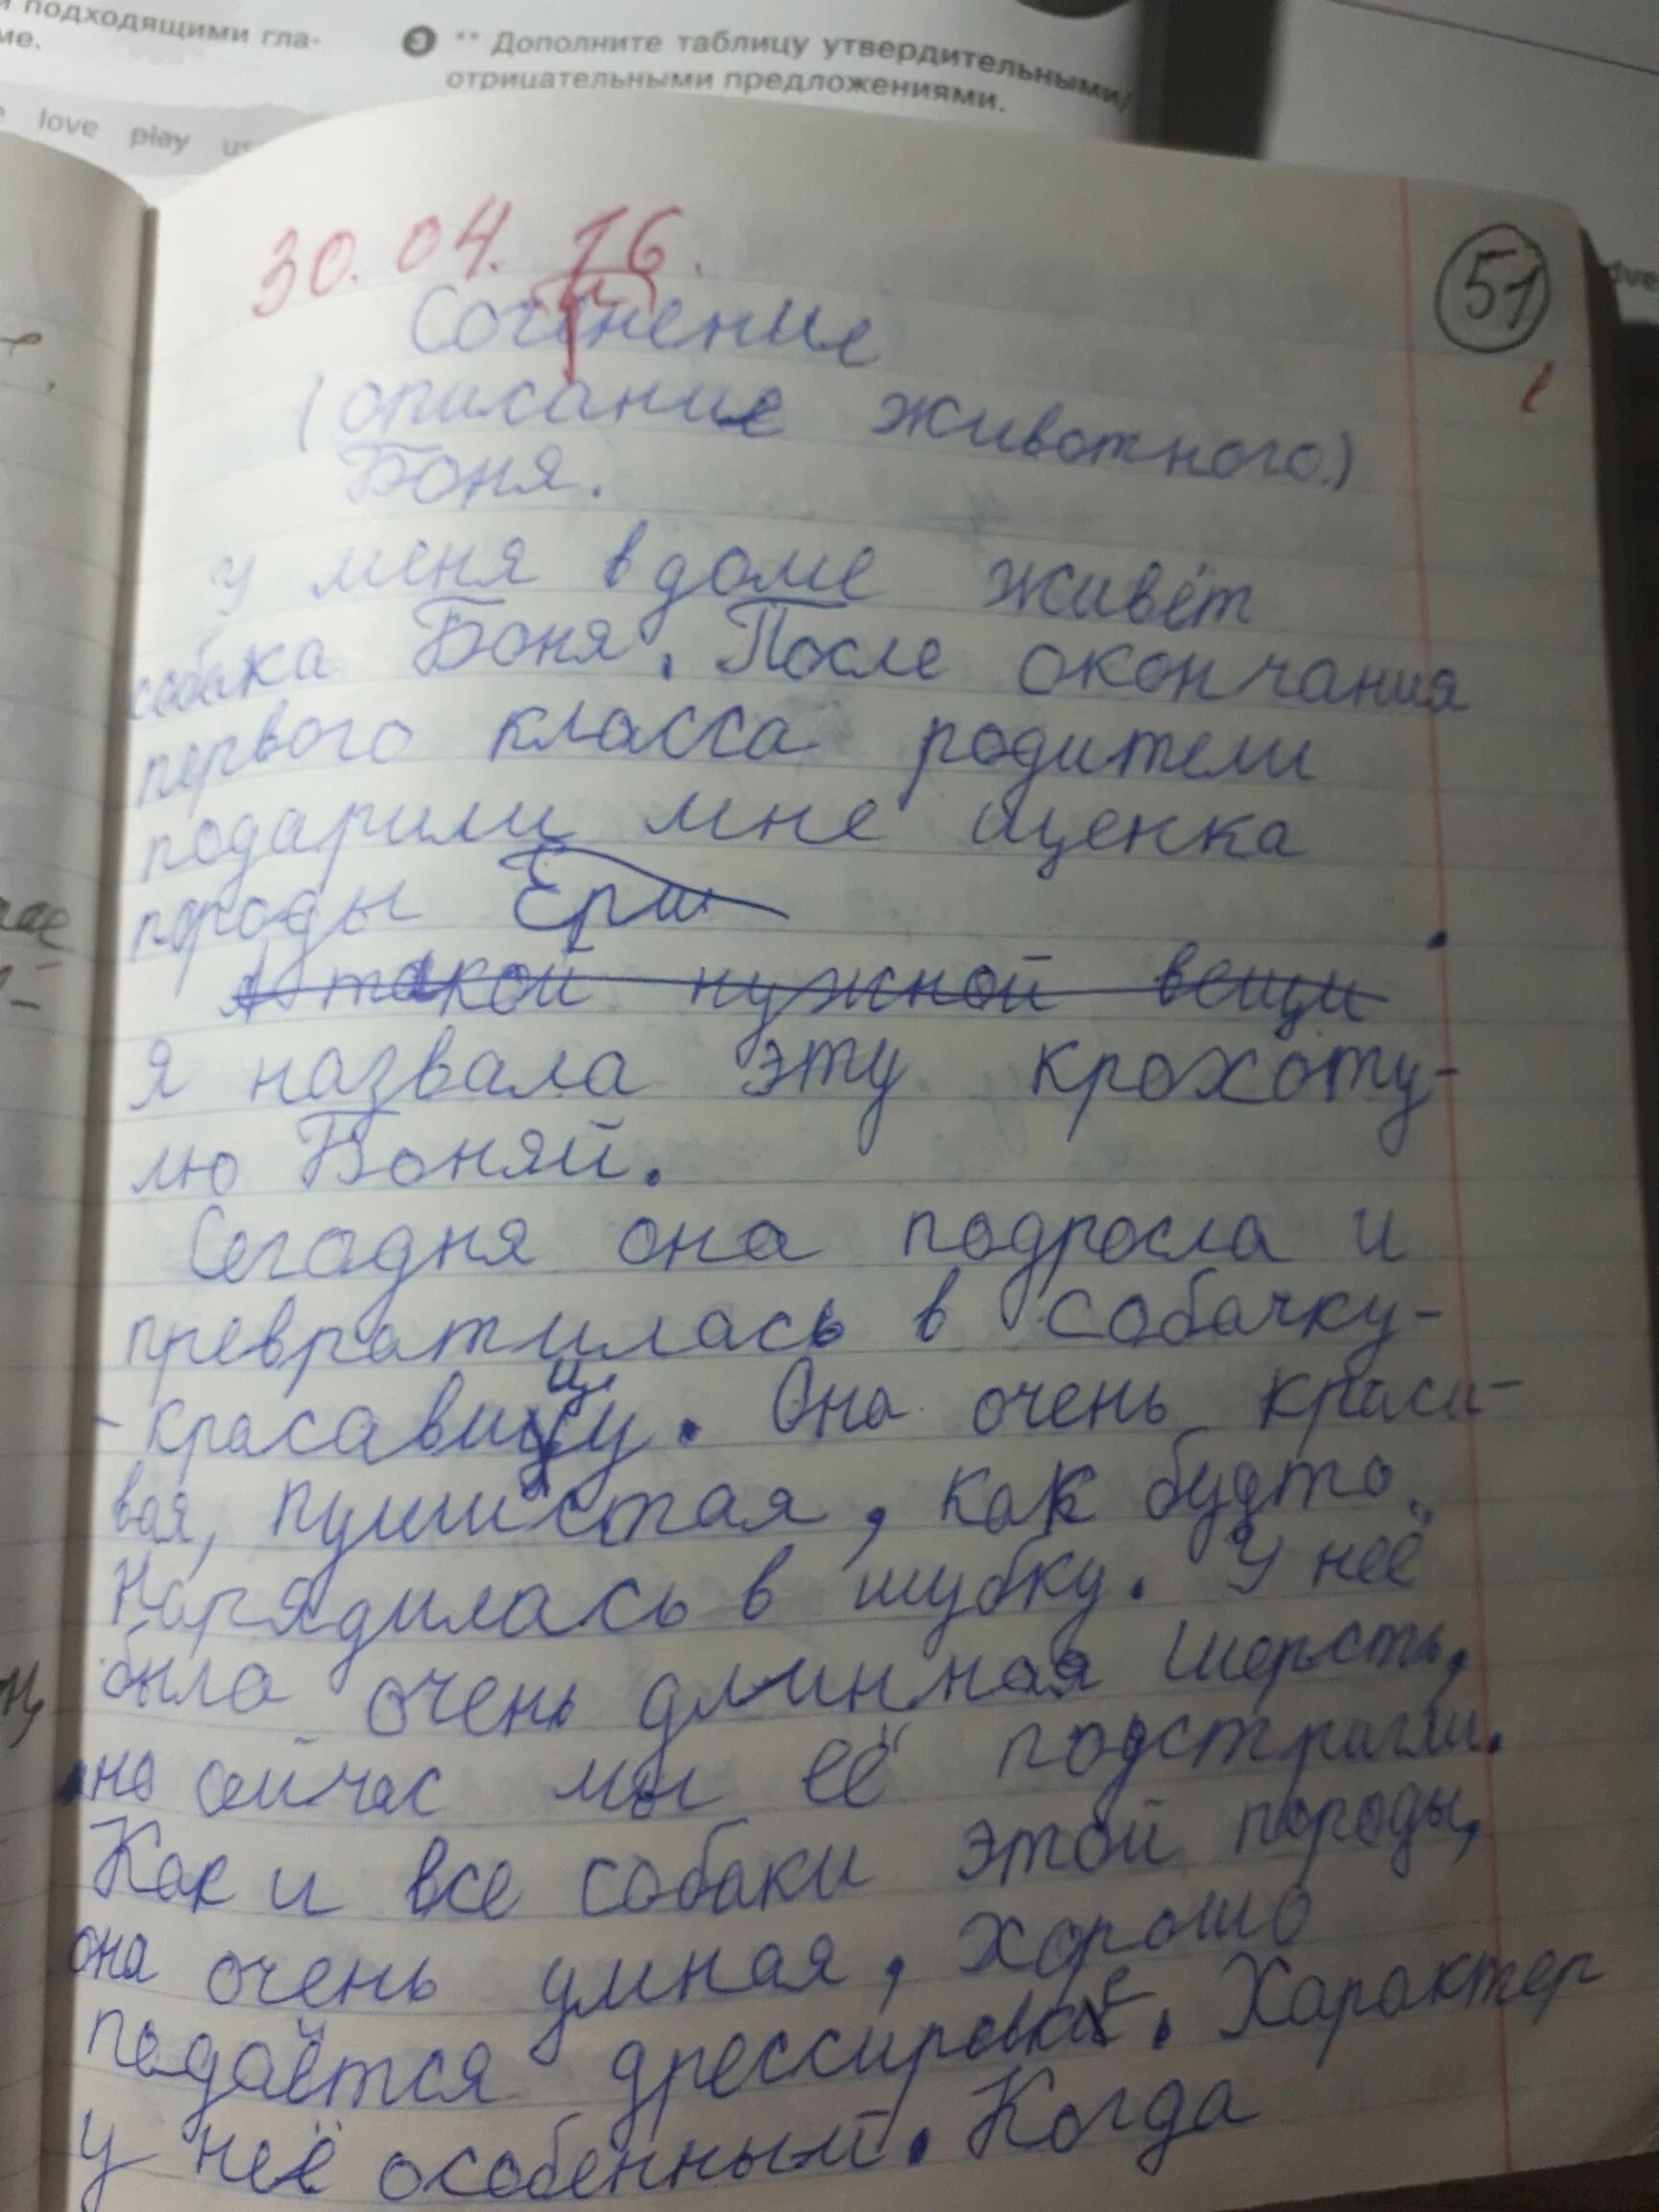 подходящими гла-
** Дополните таблицу утвердительными/
отрицательными предложениями.
love play us
30.04.16.
51
Сочинение
(описание животного.)
Боня.
У меня в доме живёт
собака Боня. После окончания
первого класса родители
подарили мне щенка
породы Ёрш
А такой нужной вещи
Я назвала эту крохоту-
лю Боняй.
Сегодня она подросла и
превратилась в собачку-
-красавицу. Она очень краси-
вая, пушистая, как будто
нарядилась в шубку. У неё
была очень длинная шерсть,
но сейчас мы её подстригли.
Как и все собаки этой породы,
она очень умная, хорошо
подаётся дрессировке. Характер
у неё особенный. Когда